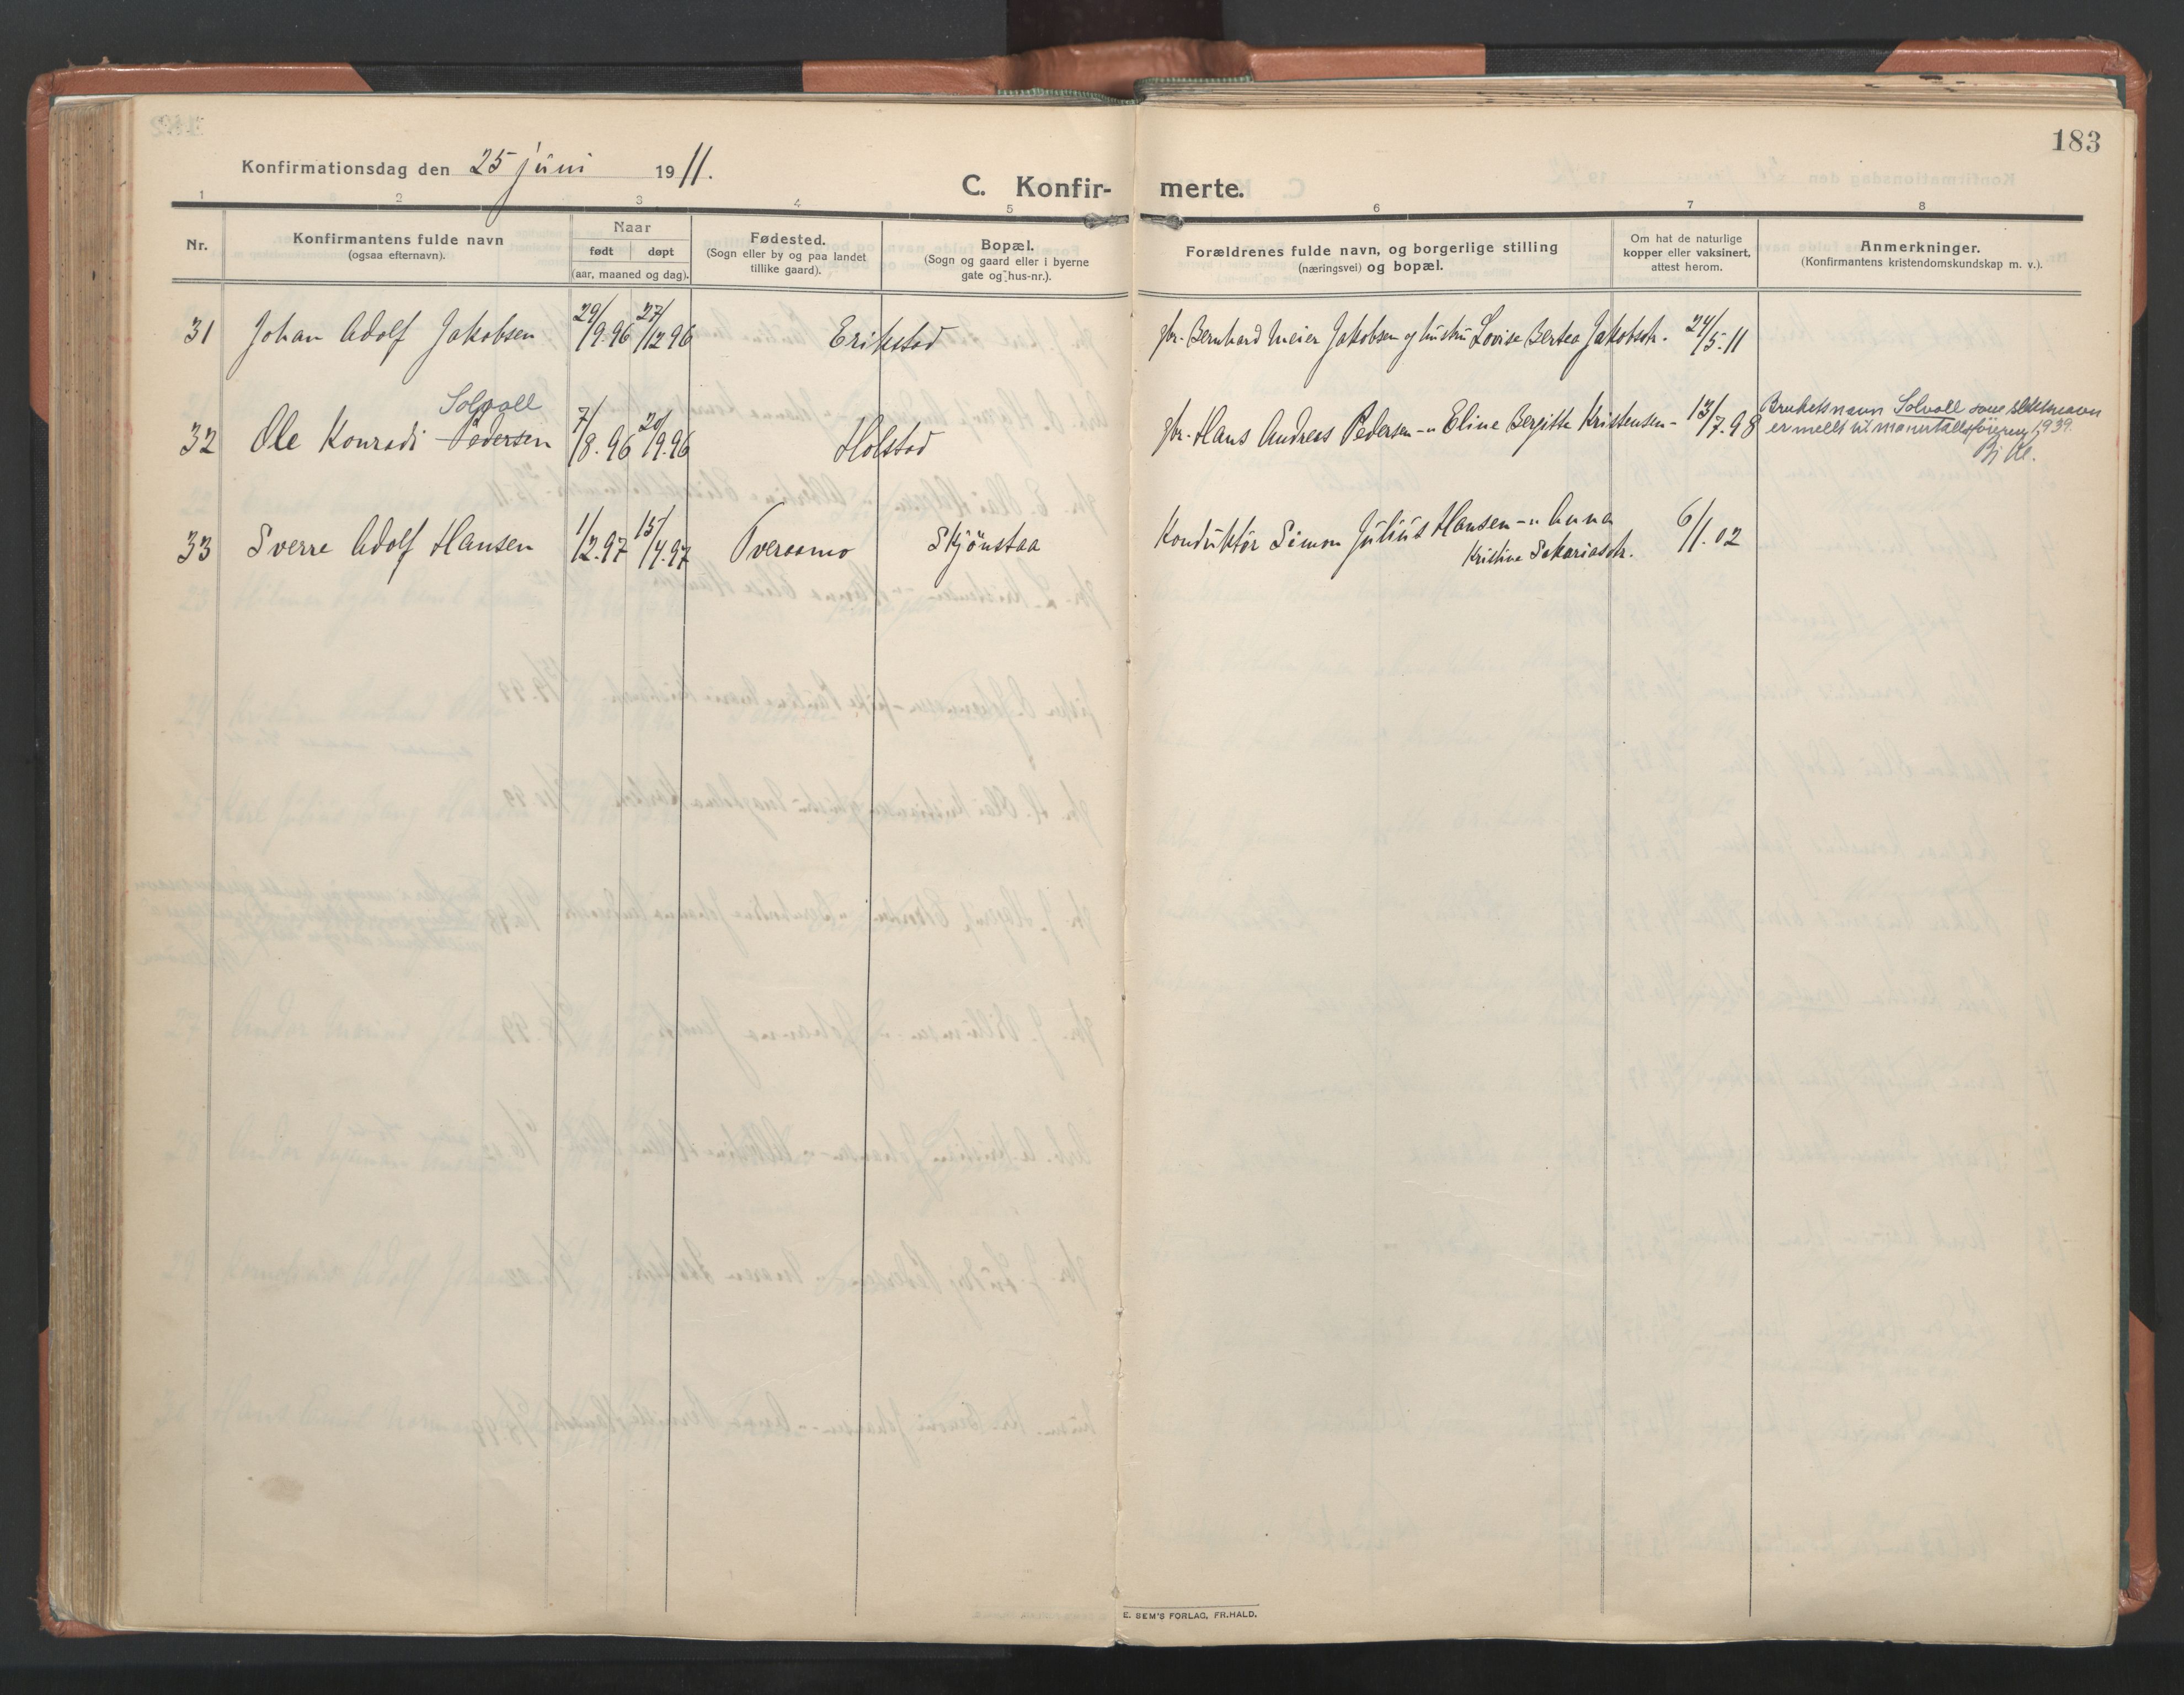 183
Konfirmationsdag den 25 juni 1911.
C. Konfir- merte.
1 2 3 4 5 6 7 8
Nr.
Konfirmantens fulde navn
(ogsaa efternavn).
Naar
født døpt
(aar, maaned og dag).
Fødested.
(Sogn eller by og paa landet
tillike gaard).
Bopæl.
(Sogn og gaard eller i byerne
gate og hus-nr.).
Forældrenes fulde navn, og borgerlige stilling
(næringsvei) og bopæl.
Om hat de naturlige
kopper eller vaksinert,
attest herom.
Anmerkninger.
(Konfirmantens kristendomskundskap m. v.).
31 Johan Adolf Jakobsen 29/9.96 27/12.96 Erikstad gbr. Bernhard Meier Jakobsen og hustru Lovise Bertea Jakobsdtr. 24/5.11
Solvoll
32 Ole Konradi Pedersen 7/8.96 20/9.96 Holstad gbr. Hans Andreas Pedersen -" Eline Bergitte Kristensen - 13/7.98 Bruketsnavn Solvoll som slektsnavn
er meldt til manntallsføring 1939.
33 Sverre Adolf Hansen 1/12.97 15/4.97 Tveraamo Skjönstaa Konduktör Simon Julius Hansen -" Anna 6/1.02
Kristine Sakariasdtr.
E. SEM'S FORLAG, FR.HALD.